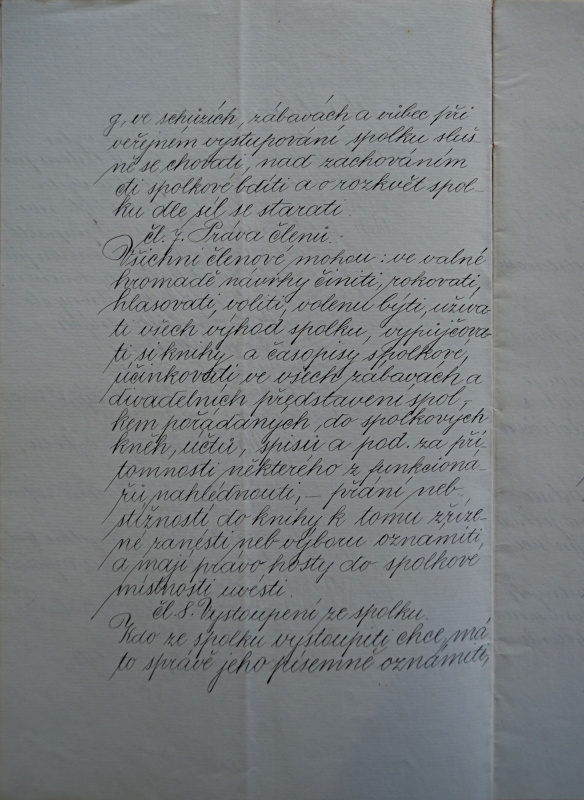 g, ve schůzích, zábavách a vůbec při
veřejném vystupování spolku sluš-
ně se chovati, nad zachováním
cti spolkové bdíti a o rozkvět spol-
ku dle sil se starati.
čl. 7. Práva členů.
Všichni členové mohou: ve valné
hromadě návrhy činiti, rokovati,
hlasovati, voliti, volenu býti, užíva-
ti všech výhod spolku, vypůjčova-
ti si knihy a časopisy spolkové,
účinkovati ve všech zábavách a
divadelních představení spol-
kem pořádaných, do spolkových
kněh, účtů, spisů a pod. za pří-
tomnosti některého z funkcioná-
řů, nahlédnouti, – přání neb
stížnosti do knihy k tomu zříze-
né zanésti neb výboru oznámiti,
a mají právo hosty do spolkové
místnosti uvésti.
čl. 8. Vystoupení ze spolku.
Kdo ze spolku vystoupiti chce, má
to správě jeho písemně oznámiti,